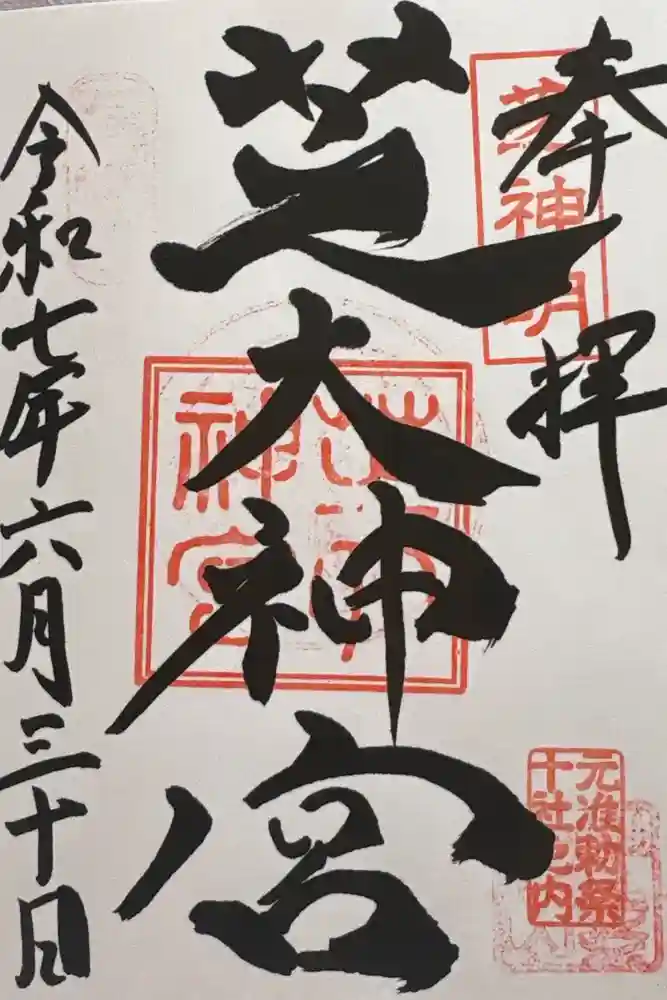 奉拝
芝神明
芝大神宮
芝大神宮
元准勅祭
十社之内
令和七年六月三十日